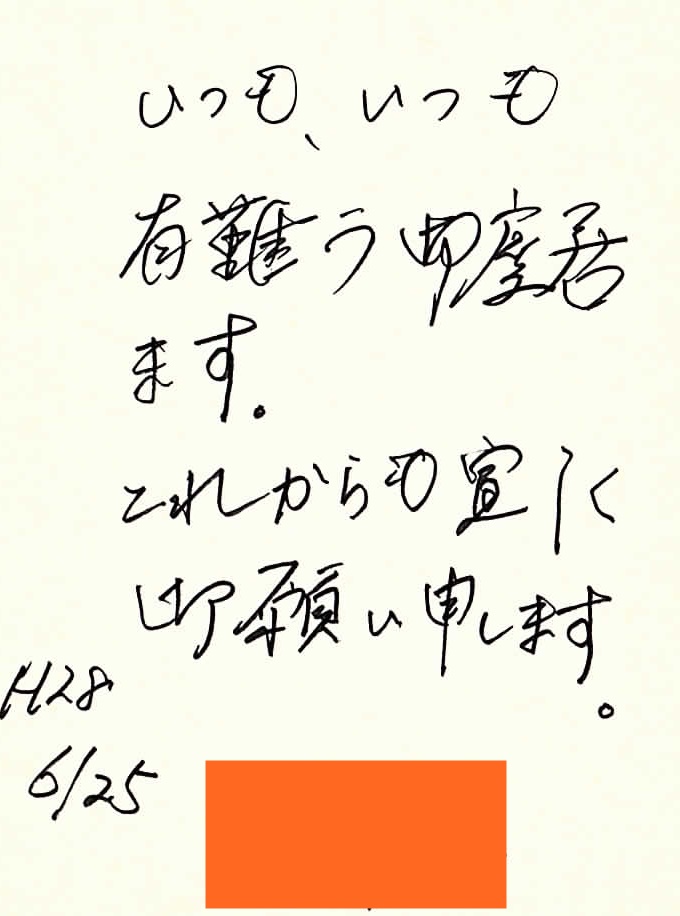 いつも、いつも
有難う御座居
ます。
これからも宜しく
御願い申します。
H28
6/25